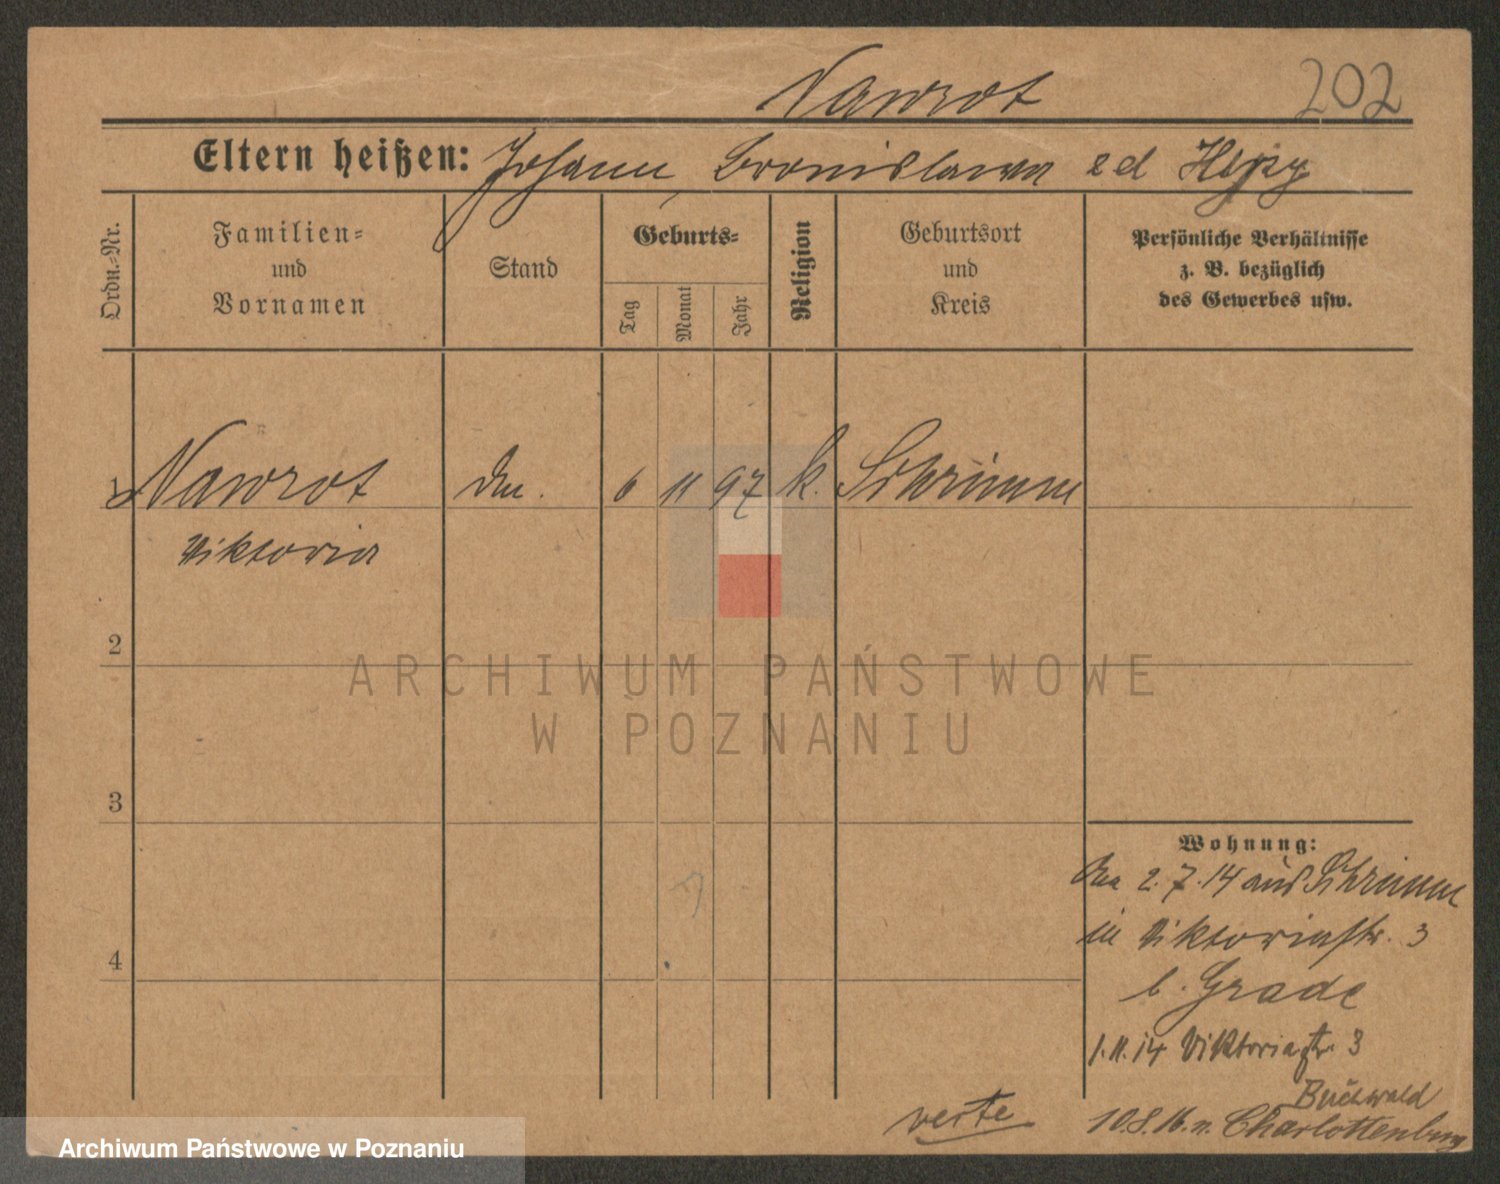 Nawrot 202
Eltern heißen: Johann, Bronislawa
Ordn.-Nr.
Familien-
und
Vornamen
Stand
Geburts-
Tag
Monat
Jahr
Religion
Geburtsort
und
Kreis
Persönliche Verhältnisse
z. B. bezüglich
des Gewerbes usw.
1 Nawrot 6 11 97 k. Schrimm
Viktoria
2
3
4
Wohnung:
2.7.14 aus Schrimm
in Viktoriastr. 3
b. Grade
1.11.14 Viktoriastr. 3
Buchwald
10.8.16. n. Charlottenburg
verte
ARCHIWUM PAŃSTWOWE
W POZNANIU
Archiwum Państwowe w Poznaniu